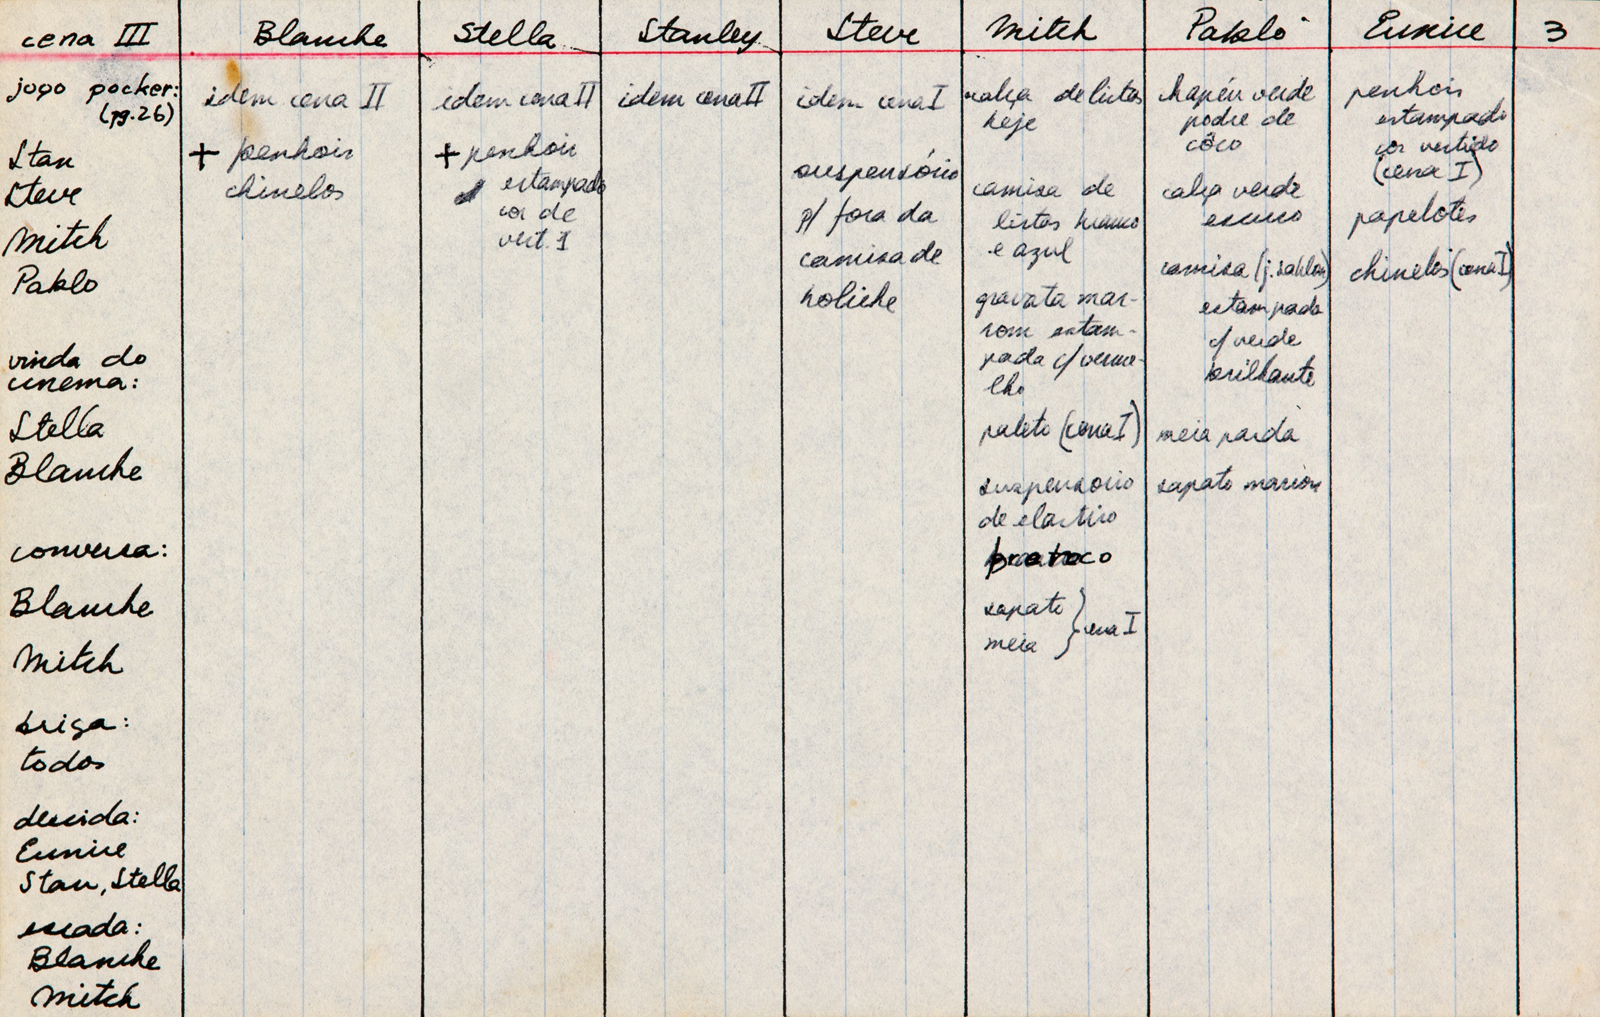 cena III
Blanche
Stella
Stanley
Steve
Mitch
Pablo
Eunice
3
jogo pocker:
(pg. 26)
Stan
Steve
Mitch
Pablo
vinda do
cinema:
Stella
Blanche
conversa:
Blanche
Mitch
briga:
todos
descida:
Eunice
Stan, Stella
escada:
Blanche
Mitch
idem cena II
+ penhoir
chinelos
idem cena II
+ penhoir
estampado
cor de
vest. I
idem cena II
idem cena I
suspensório
p/ fora da
camisa de
boliche
calça de listas
beje
camisa de
listas branco
e azul
gravata mar-
rom estam-
pada c/ verme-
lho
paleto (cena I)
suspensorio
de elastico
sapato
meia } cena I
chapéu verde
podre de
côco
calça verde
escuro
camisa
estampada
c/ verde
brilhante
meia parda
sapato marron
penhoir
estampado
cor vestido
(cena I)
papelotes
chinelos (cena I)